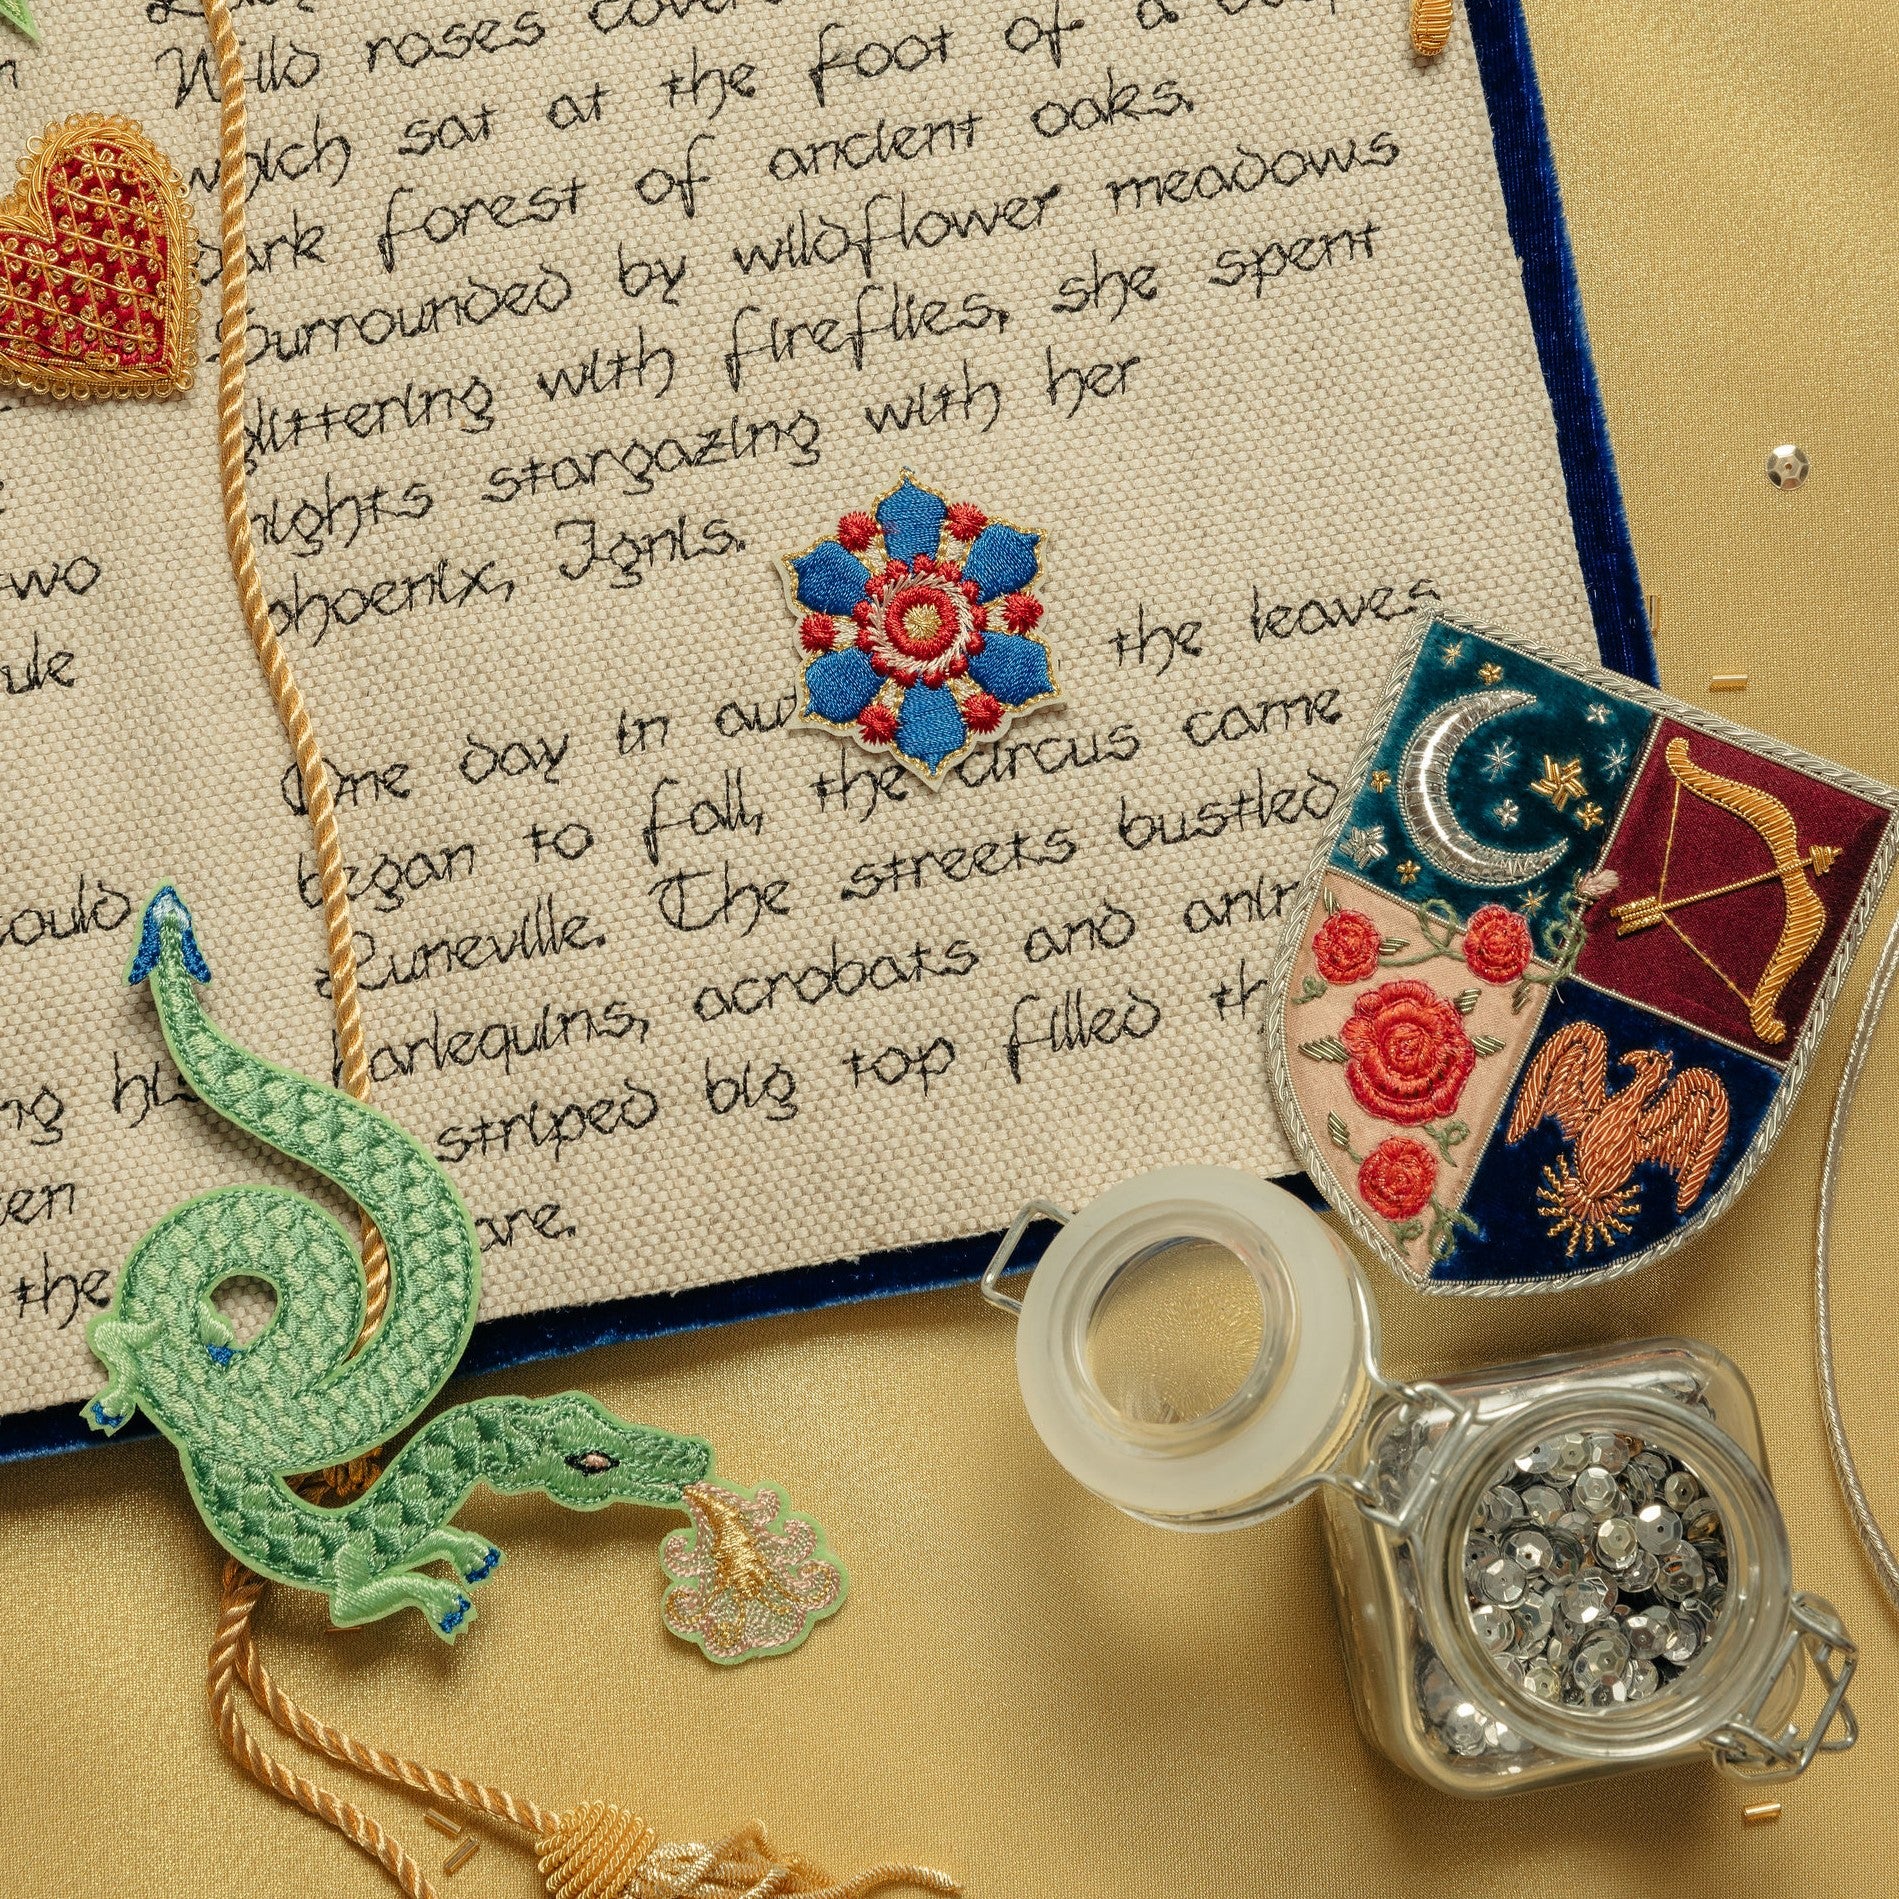 two
ule
ould
ng his
en
the
Wild roses cover
which sat at the foot of a
dark forest of ancient oaks.
Surrounded by wildflower meadows
glittering with fireflies, she spent
nights stargazing with her
phoenix, Ignis.
One day in au the leaves
began to fall, the circus came
Luneville. The streets bustled
harlequins, acrobats and ani
striped big top filled th
are.